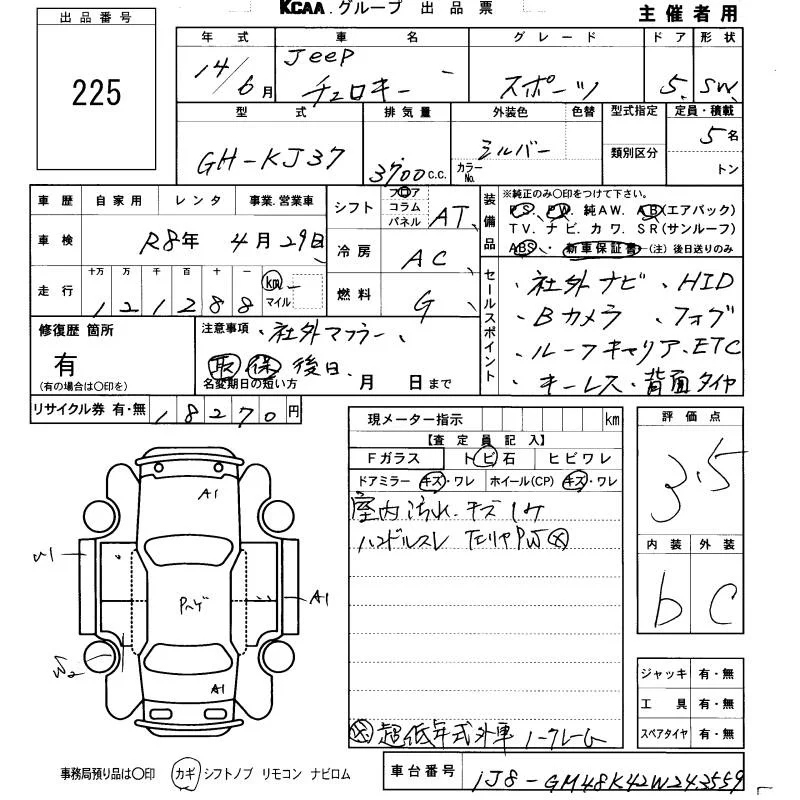 KCAA.グループ 出品票
主催者用
出品番号
225
年式 車名 グレード ドア 形状
14/6月 Jeep チェロキー スポーツ 5 SW
型式 排気量 外装色 色替 型式指定 定員・積載
GH-KJ37 3700c.c. シルバー カラーNo. 類別区分 5名 トン
車歴 自家用 レンタ 事業.営業車
シフト フロア コラム パネル AT
装備品
※純正のみ〇印をつけて下さい。
PS、PW、純AW、AB(エアバック)
TV、ナビ、カワ、SR(サンルーフ)
ABS、新車保証書(注)後日送りのみ
車検 R8年 4月29日
冷房 AC
走行 十万 万 千 百 十 一 km マイル
121288
燃料 G
セールスポイント
・社外ナビ ・HID
・Bカメラ ・フォグ
・ルーフキャリア・ETC
・キーレス・背面タイヤ
修復歴 箇所
有
(有の場合は〇印を)
注意事項 ・社外マフラー、
取 保 後日
名変期日の短い方 月 日まで
リサイクル券 有・無 18270円
現メーター指示 km
【査定員記入】
Fガラス トビ石 ヒビワレ
ドアミラー キズ・ワレ ホイール(CP) キズ・ワレ
室内汚れ.キズ1ケ
ハンドルスレ 左リヤPW
超低年式外車 ノークレーム
評価点
3.5
内装 外装
b C
A1
A1
A1
Pヘゲ
ジャッキ 有・無
工具 有・無
スペアタイヤ 有・無
事務局預り品は〇印 カギ シフトノブ リモコン ナビロム
車台番号 1J8-GM48K42W243559